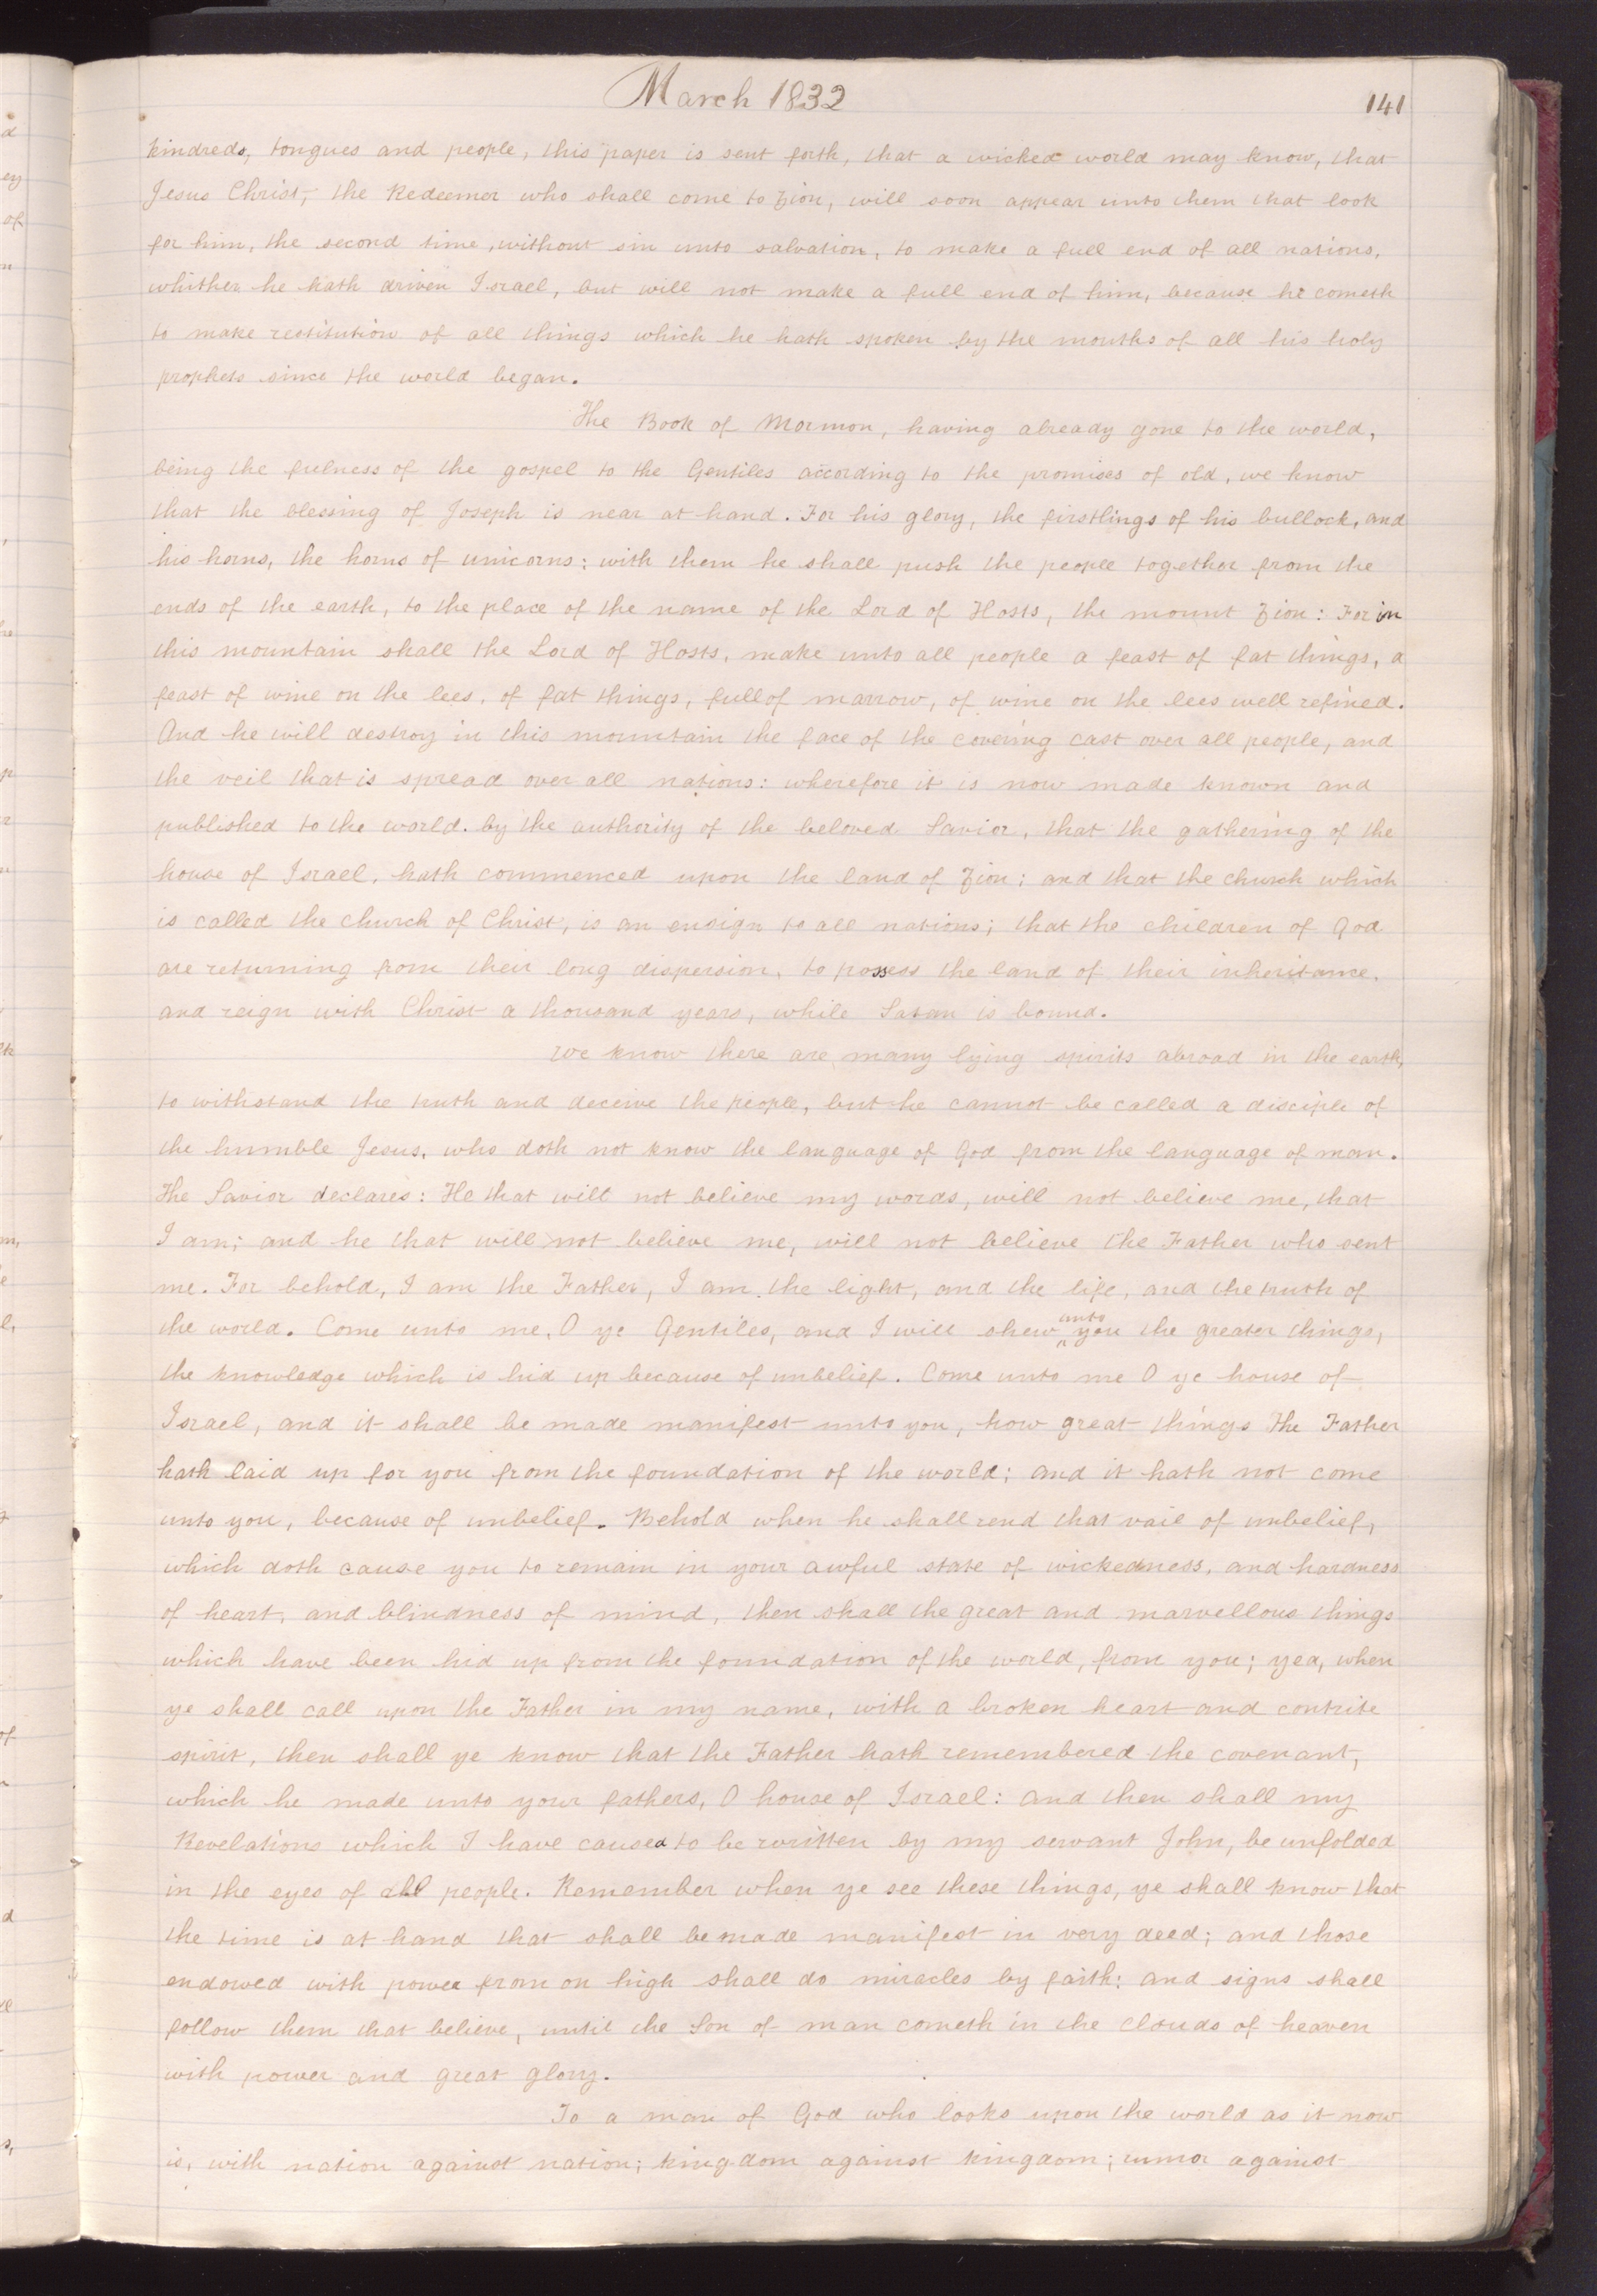 March 1832
141
kindreds, tongues and people, this paper is sent forth, that a wicked world may know, that
Jesus Christ, the Redeemer who shall come to Zion, will soon appear unto them that look
for him, the second time, without sin unto salvation, to make a full end of all nations,
whither he hath driven Israel, but will not make a full end of him, because he cometh
to make restitution of all things which he hath spoken by the mouths of all his holy
prophets since the world began.
The Book of Mormon, having already gone to the world,
being the fulness of the gospel to the Gentiles according to the promises of old, we know
that the blessing of Joseph is near at hand. For his glory, the firstlings of his bullock, and
his horns, the horns of unicorns: with them he shall push the people together from the
ends of the earth, to the place of the name of the Lord of Hosts, the mount Zion: For in
this mountain shall the Lord of Hosts, make unto all people a feast of fat things, a
feast of wine on the lees, of fat things, full of marrow, of wine on the lees well refined.
And he will destroy in this mountain the face of the covering cast over all people, and
the veil that is spread over all nations: wherefore it is now made known and
published to the world. by the authority of the beloved Savior, that the gathering of the
house of Israel, hath commenced upon the land of Zion; and that the church which
is called the church of Christ, is an ensign to all nations; that the children of God
are returning from their long dispersion, to possess the land of their inheritance.
and reign with Christ a thousand years, while Satan is bound.
We know there are many lying spirits abroad in the earth,
to withstand the truth and deceive the people, but he cannot be called a disciple of
the humble Jesus, who doth not know the language of God from the language of man.
The Savior declares: He that will not believe my words, will not believe me, that
I am; and he that will not believe me, will not believe the Father who sent
me. For behold, I am the Father, I am the light, and the life, and the truth of
the world. Come unto me, O ye Gentiles, and I will shew unto you the greater things,
the knowledge which is hid up because of unbelief. Come unto me O ye house of
Israel, and it shall be made manifest unto you, how great things the Father
hath laid up for you from the foundation of the world; and it hath not come
unto you, because of unbelief. Behold when he shall rend that vail of unbelief,
which doth cause you to remain in your awful state of wickedness, and hardness
of heart, and blindness of mind, then shall the great and marvellous things
which have been hid up from the foundation of the world, from you; yea, when
ye shall call upon the Father in my name, with a broken heart and contrite
spirit, then shall ye know that the Father hath remembered the covenant,
which he made unto your fathers, O house of Israel: and then shall my
Revelations which I have caused to be written by my servant John, be unfolded
in the eyes of all people. Remember when ye see these things, ye shall know that
the time is at hand that shall be made manifest in very deed; and those
endowed with power from on high shall do miracles by faith: and signs shall
follow them that believe, until the Son of man cometh in the clouds of heaven
with power and great glory.
To a man of God who looks upon the world as it now
is, with nation against nation; kingdom against kingdom; rumor against